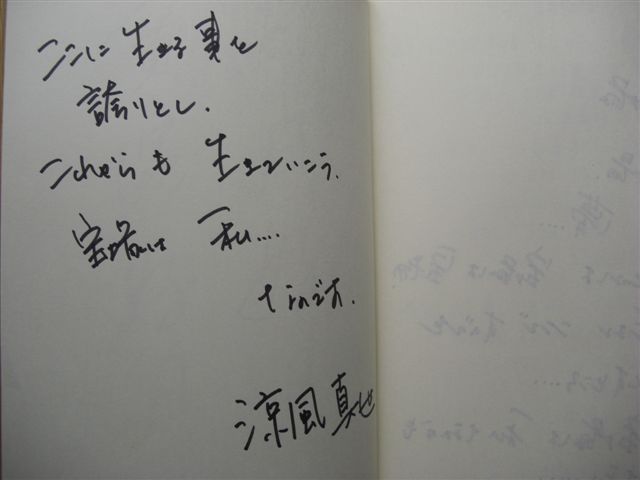 ここに 生きる 事を
誇りとし.
これからも 生きていこう.
宝塚は 私....
です.
涼風真世